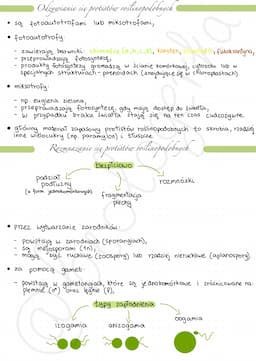 Odżywianie się protistów roślinopodobnych
• są fotoautotrofami lub miksotrofami,
• fotoautotrofy:
- zawierają barwniki: chlorofile (a, b, c, d), karoten, fukoksantyna,
- przeprowadzają fotosyntezę,
- produkty fotosyntezy gromadzą w ścianie komórkowej, cytozolu lub w
specjalnych strukturach - pirenoidach (znajdujące się w chloroplastach)
• miksotrofy:
- np. euglena zielona,
- przeprowadzają fotosyntezę, gdy mają dostęp do światła,
- w przypadku braku światła stają się na ten czas cudzożywne.
• główny materiał zapasowy protistów roślinopodobnych to skrobia, rzadziej
inne wielocukry (np. paramylon) i tłuszcze.
Rozmnażanie się protistów roślinopodobnych
bezpłciowo
podział
podłużny
(u form jednokomórkowych)
fragmentacja
plechy
rozmnóżki
• przez wytwarzanie zarodników:
- powstają w zarodniach (sporangiach),
- są mejosporami (1n),
- mogą być ruchliwe (zoospory) lub rzadziej nieruchliwe (aplanospory).
• za pomocą gamet:
- powstają w gametangiach, które są jednokomórkowe i zróżnicowane na:
plemnie (♂) oraz lęgnie (♀).
typy zapłodnienia
izogamia
anizogamia
oogamia